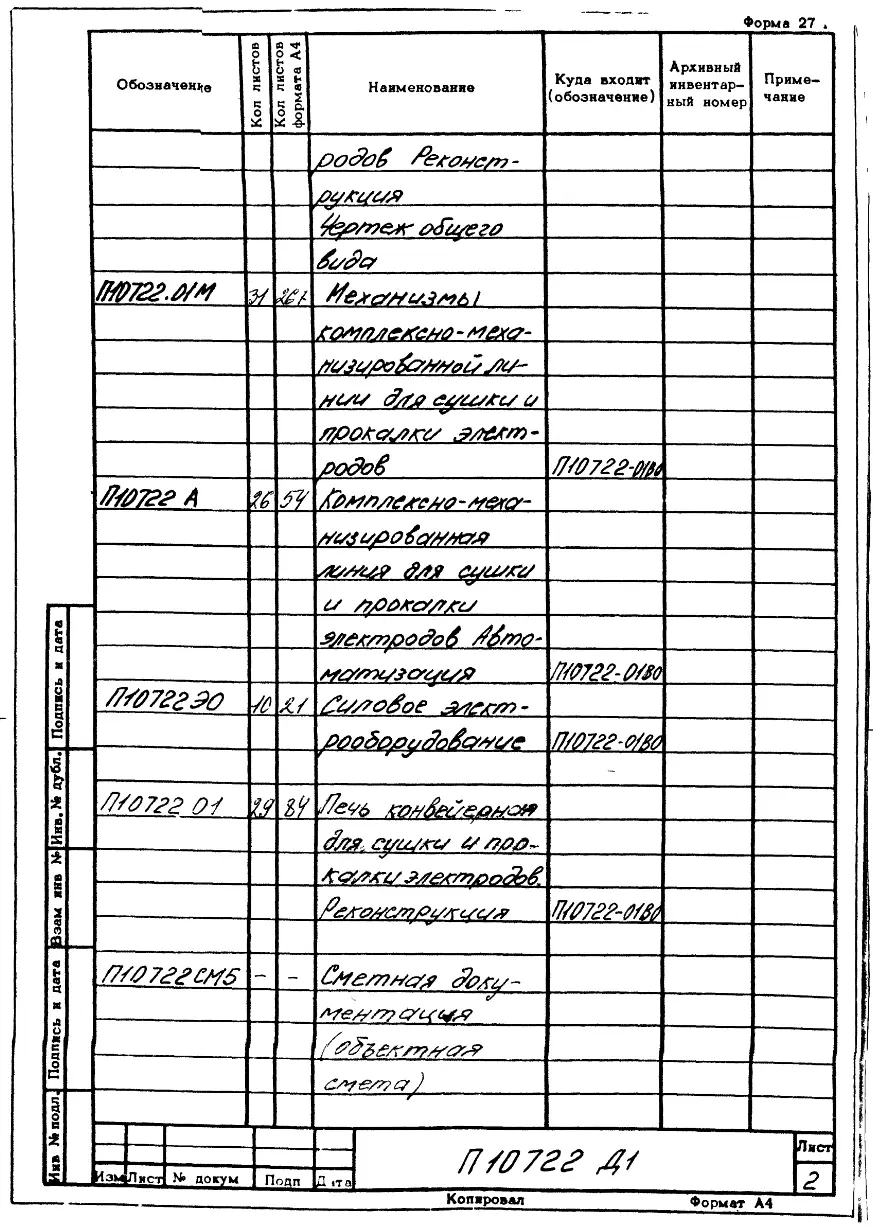 Форма 27 .
Обозначение
Кол листов
Кол листов формата А4
Наименование
Куда входит (обозначение)
Архивный инвентар- ный номер
Приме- чание
родов Реконст-
рукция
Чертеж общего
вида
П10722.01М 31 Механизмы
комплексно-меха-
низированной ли-
нии для сушки и
прокалки элект-
родов П10722-01В0
П10722 А 26 54 Комплексно-меха-
низированная
линия для сушки
и прокалки
электродов Авто-
матизация П10722-01В0
П10722ЭО 10 21 Силовое элект-
рооборудование П10722-01В0
П10722 01 29 84 Печь конвейерная
для сушки и про-
калки электродов.
Реконструкция П10722-01В0
П10722СМ5 - - Сметная доку-
ментация
(объектная
смета)
Подпись и дата
Инв. № дубл.
Взам инв №
Подпись и дата
Инв № подл.
Изм Лист № докум Подп Дата
П10722 Д1
Лист
2
Копировал Формат А4